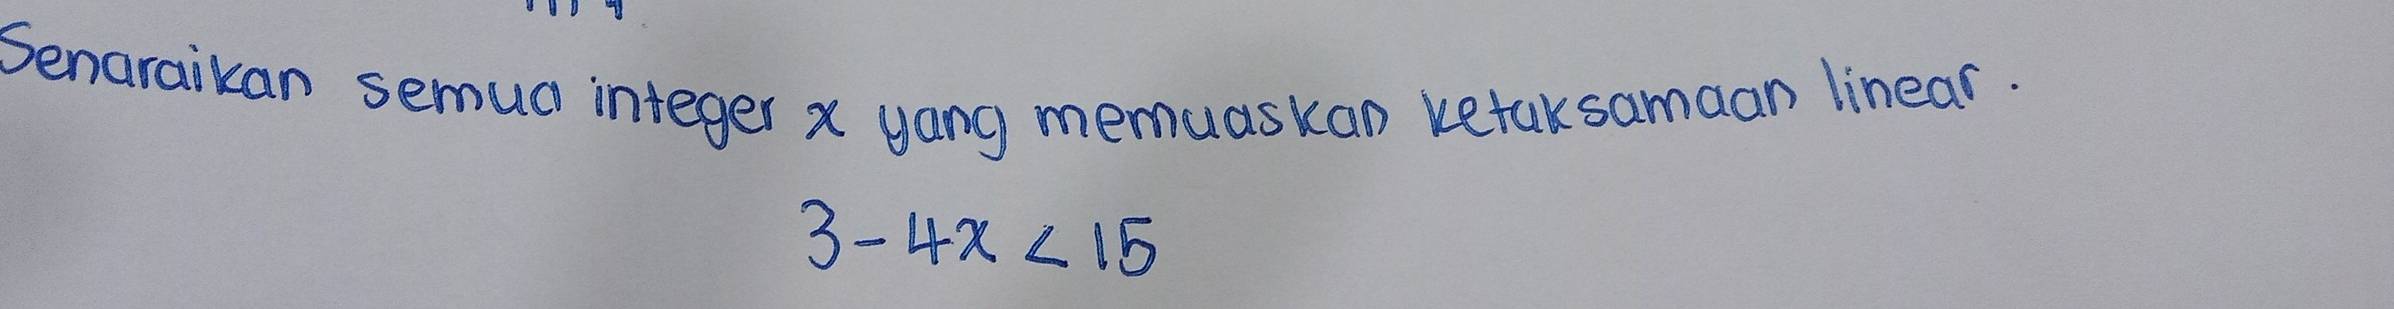 Senaraikan semua integer x yang memuaskan ketaksamaan linear.
3 - 4x < 15